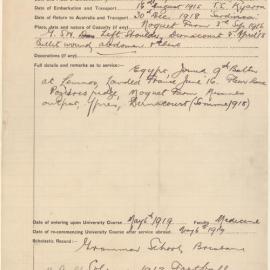 Date of Embarkation and Transport 16th August 1915 T.S. Kyarra
Date of Return to Australia and Transport 20 Dec 1918
Place, date and nature of Casualty (if any) Moquet Farm 3rd Sep 1916
G.S.W. Left Shoulder, Dernancourt 5 April 18
Bullet wound, abdomen
Decorations (if any)
Full details and remarks as to service:
Egypt, Joined 9th Battn
at Lemnos, Landed France, June 16.
Pozieres ridge, Moquet Farm
Ypres, Dernancourt (Somme 1918)
Date of entering upon University Course May 1919 Faculty Medicine
Date of re-commencing University Course after service abroad May 1919
Scholastic Record
Grammar School, Brisbane
1919 Football